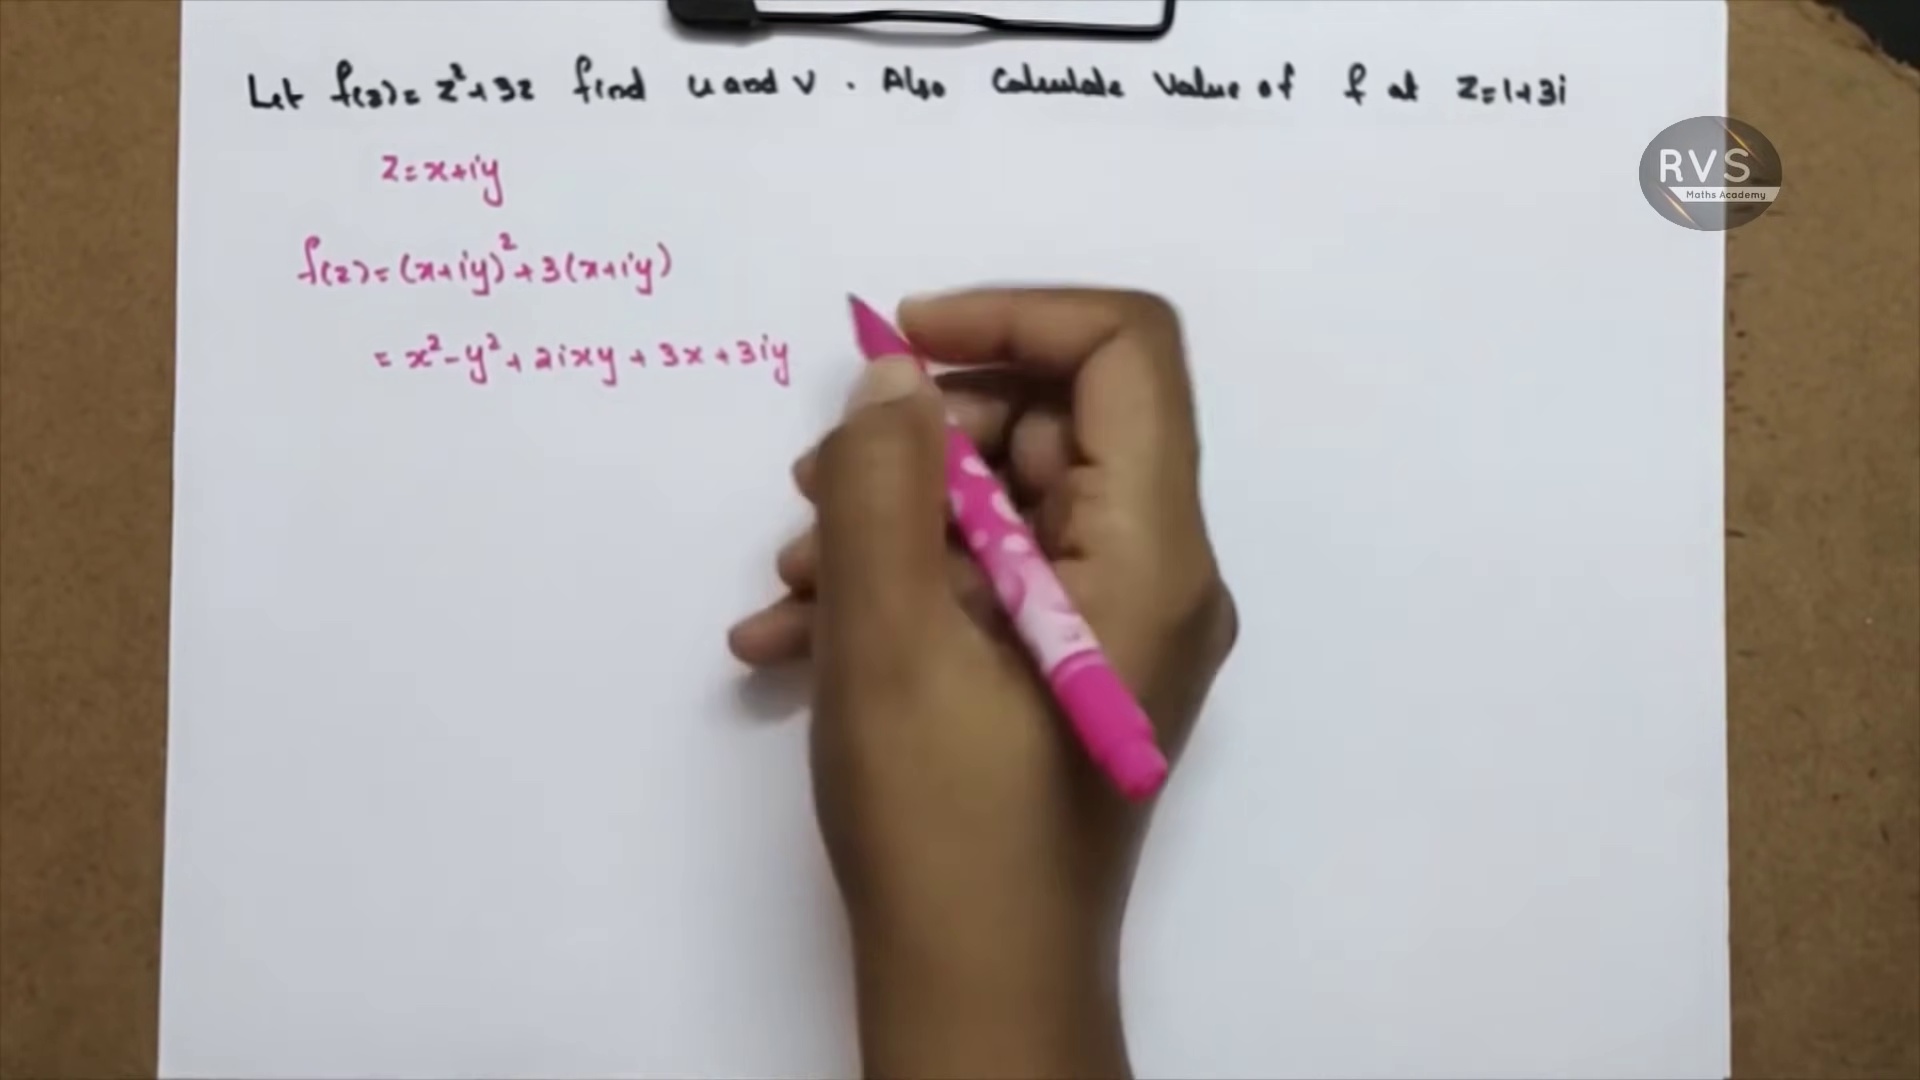 Let f(z) = z² + 3z find u and v. Also Calculate Value of f at z = 1+3i
RVS
Maths Academy
z = x+iy
f(z) = (x+iy)² + 3(x+iy)
= x² - y² + 2ixy + 3x + 3iy